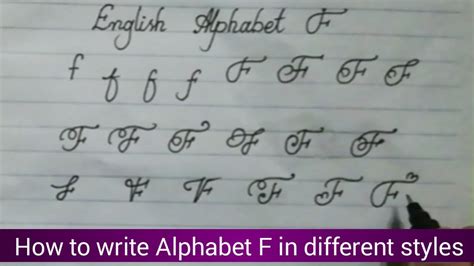 English Alphabet F
f f f f F F F F
F F F F F F
F F F F F F
How to write Alphabet F in different styles